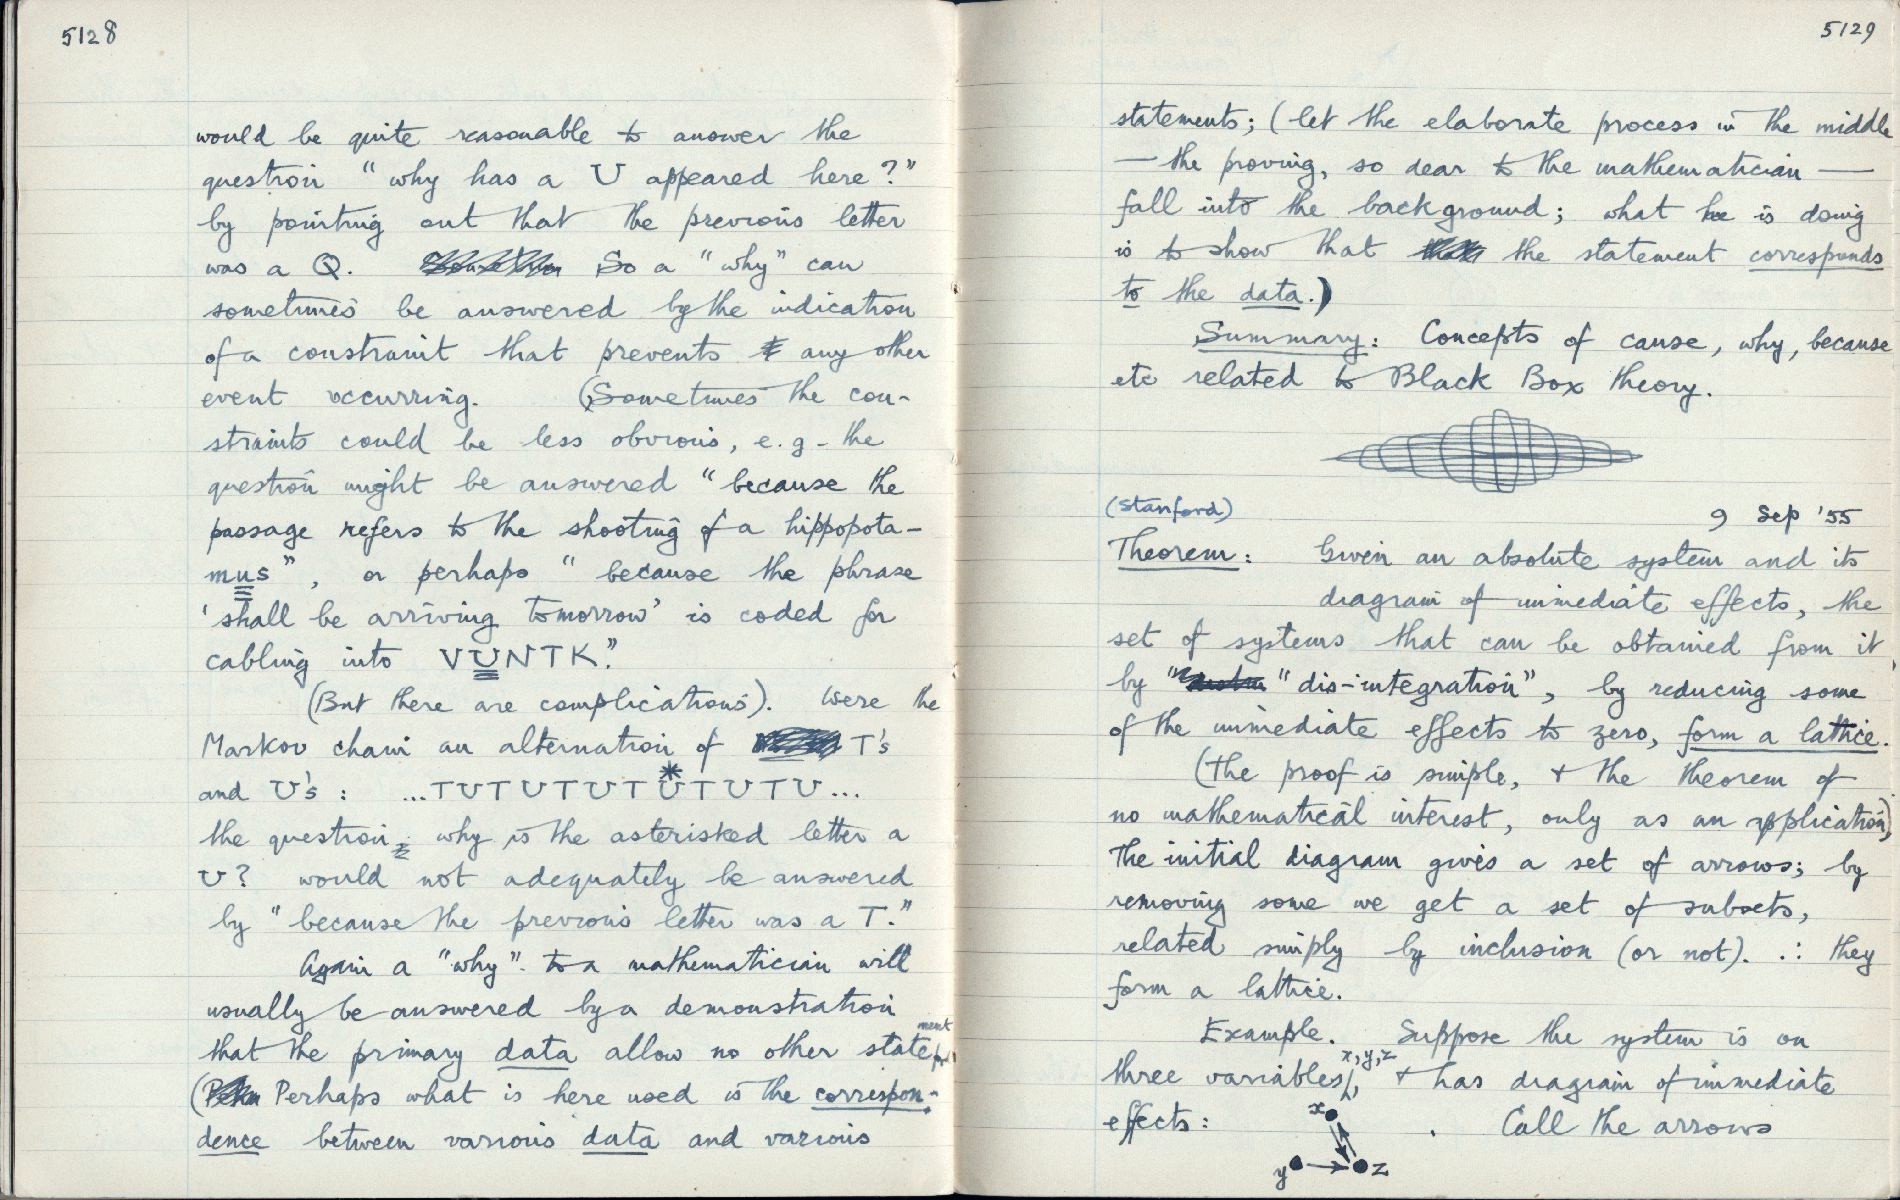 5128
would be quite reasonable to answer the
question "why has a U appeared here?"
by pointing out that the previous letter
was a Q. So a "why" can
sometimes be answered by the indication
of a constraint that prevents any other
event occurring. (Sometimes the con-
straints could be less obvious, e.g. the
question might be answered "because the
passage refers to the shooting of a hippopota-
mus", or perhaps "because the phrase
'shall be arriving tomorrow' is coded for
cabling into VUNTK."
(But there are complications). Were the
Markov chain an alternation of T's
and U's: ...TUTUTUTU*TUTU...
the question, why is the asterisked letter a
U? would not adequately be answered
by "because the previous letter was a T."
Again a "why" to a mathematician will
usually be answered by a demonstration
that the primary data allow no other statement
(Perhaps what is here used is the correspon-
dence between various data and various
5129
statements; (let the elaborate process in the middle
— the proving, so dear to the mathematician —
fall into the background; what he is doing
is to show that the statement corresponds
to the data.)
Summary: Concepts of cause, why, because
etc related to Black Box theory.
(Stanford)
9 Sep '55
Theorem: Given an absolute system and its
diagram of immediate effects, the
set of systems that can be obtained from it
by "dis-integration", by reducing some
of the immediate effects to zero, form a lattice.
(The proof is simple, + the theorem of
no mathematical interest, only as an application)
The initial diagram gives a set of arrows; by
removing some we get a set of subsets,
related simply by inclusion (or not). ∴ they
form a lattice.
Example. Suppose the system is on
three variables, x, y, z + has diagram of immediate
effects: . Call the arrows
x
y z